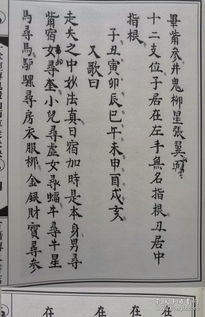 畢觜參井鬼柳星張翼軫
十二支位子居在左手無名指根丑居中
指根
子丑寅卯辰巳午未申酉戌亥
又歌曰
走失之中妙法真日宿加時是本身男尋
觜宿女尋奎小兒尋虛女尋蝠牛尋牛星
馬尋馬驢騾尋房衣服柳金銀財寶尋參
在
在
在
在